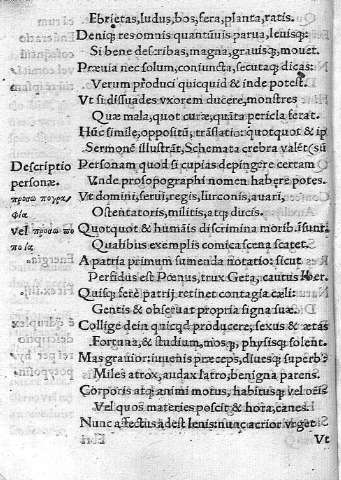 Ebrietas, ludus, bos, fera, planta, ratis.
Deniq; res omnis quantũuis parua, leuisq;:
Si bene describas, magna, grauisq;, mouet.
Præuia nec solum, coniuncta, secutaq; dicas:
Verum produci quicquid & inde potest.
Vt si dissuades vxorem ducere, monstres
Quæ mala, quot curæ, quãta pericla ferat.
Hũc simile, oppositũ, trãslatio: quotquot & ip
Sermonẽ illustrãt, Schemata crebra valẽt (sũ
Descriptio personæ.
Personam quod si cupias depingere certam
Vnde prosopographi nomen habere potes.
προσωπογραφία
Vt domini, serui, regis, lurconis, auari,
Ostentatoris, militis, atq; ducis.
vel προσωποποιΐα
Quotquot & humãis discrimina morib. insunt
Qualibus exemplis comica scena scatet.
A patria primum sumenda notatio: sicut
Perfidus est Pœnus, trux Geta, cautus Iber.
Quisq; ferè patrij retinet contagia cæli:
Gentis & obseruat propria signa suæ.
Collige dein quicqd producere, sexus & ætas
Fortuna, & studium, mosq;, physisq; solent.
Mas grauior: iuuenis præceps, diuesq; superb9
Miles atrox, audax latro, benigna parens.
Corporis atq; animi motus, habitusq; vel ocis
Vel quos materies poscit & hora, canes.
Nunc affectus adest lenis: nunc acrior vrget
Vt